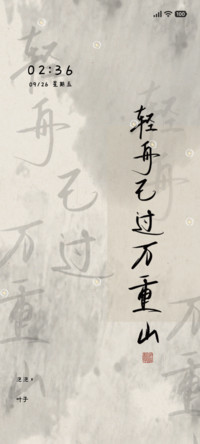 100
02:36
09/26 星期五
轻舟已过万重山
轻舟已过
万
万重
叶子